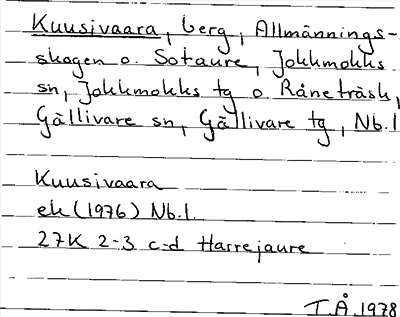 Kuusivaara, berg, Allmännings-
skogen o. Sotaure, Jokkmokks
sn, Jokkmokks tg o Råneträsk,
Gällivare sn, Gällivare tg, Nb.l
Kuusivaara
ek (1976) Nb.l.
27K 2-3 c-d Harrejaure
T.Å. 1978